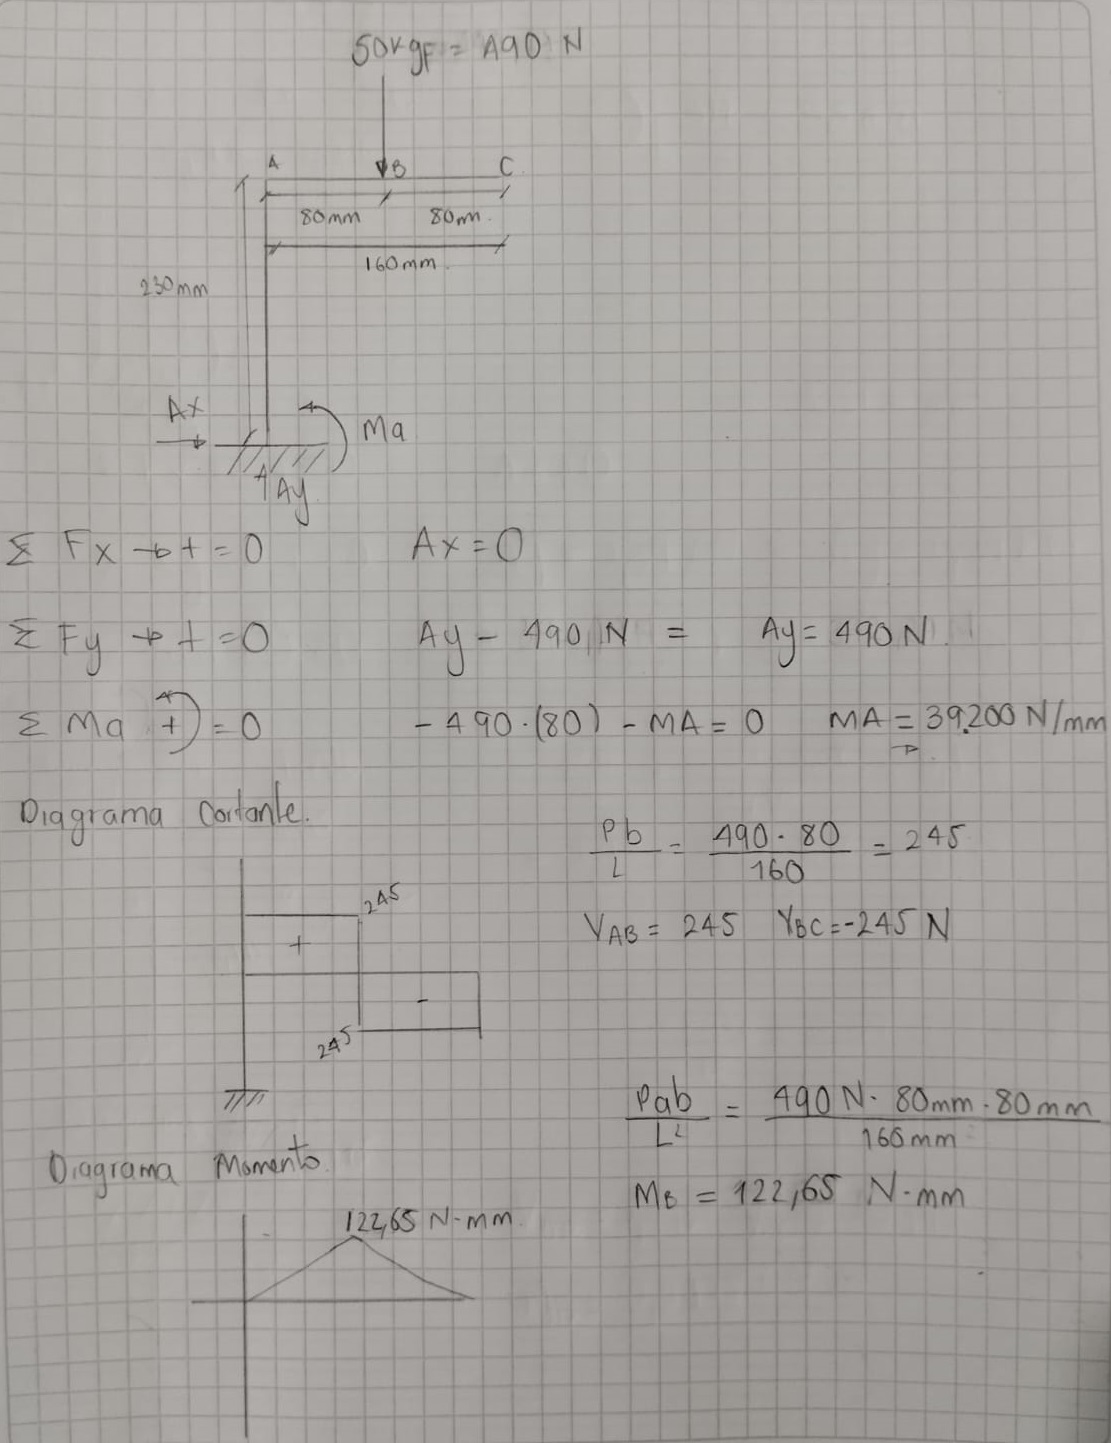 50kgF = 490 N
A B C
80mm 80m.
160mm.
230mm
Ax
Ma
Ay
Σ Fx → + = 0 Ax = 0
Σ Fy → + = 0 Ay - 490 N = Ay = 490 N
Σ Ma + = 0 -490·(80) - MA = 0 MA = 39.200 N/mm
Diagrama Cortante.
Pb/L = 490·80/160 = 245
245
VAB = 245 VBC = -245 N
+
-
245
Pab/L² = 490 N· 80mm·80mm/160mm
Diagrama Momento
MB = 122,65 N·mm
122,65 N·mm